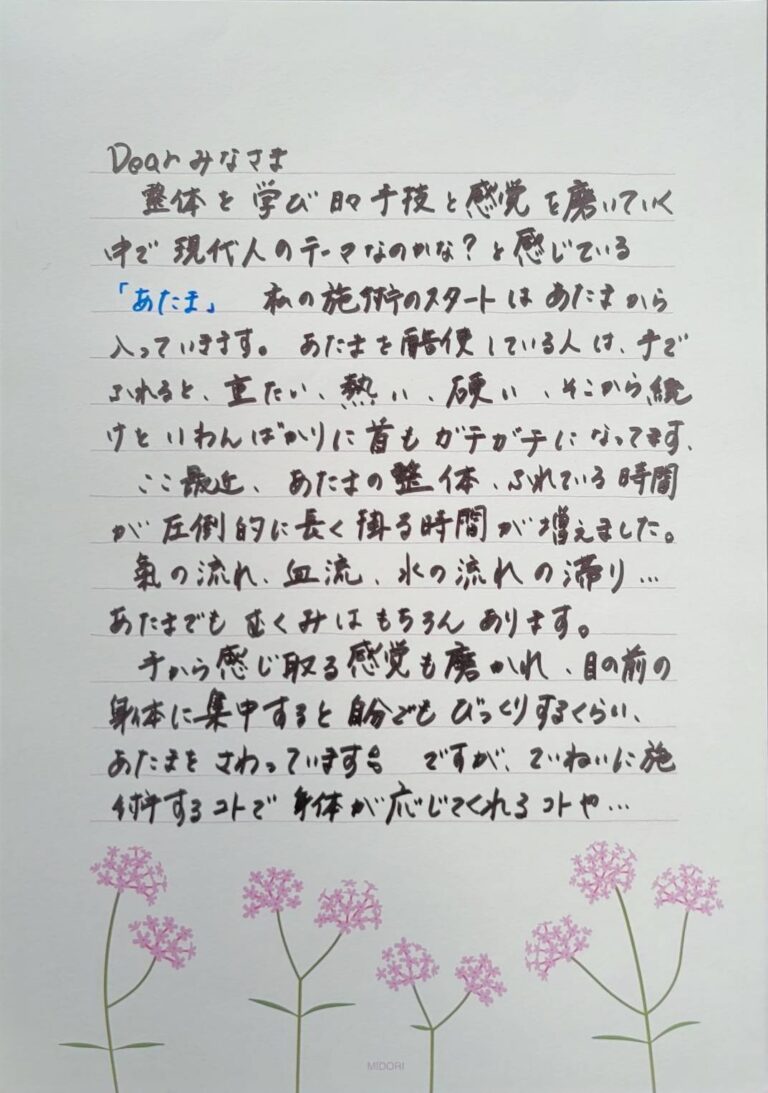 Dearみなさま
整体を学び日々手技と感覚を磨いていく
中で現代人のテーマなのかな?と感じている
「あたま」 私の施術のスタートはあたまから
入っていきます。あたまを酷使している人は、手で
ふれると、重たい、熱い、硬い、そこから続
けといわんばかりに首もガチガチになってます、
ここ最近、あたまの整体、ふれている時間
が圧倒的に長く掛る時間が増えました。
氣の流れ、血流、水の流れの滞り…
あたまでもむくみはもちろんあります。
手から感じ取る感覚も磨かれ、目の前の
身体に集中すると自分でもびっくりするくらい、
あたまをさわっています。 ですが、ていねいに施
術するコトで身体が応じてくれるコトや…
MIDORI